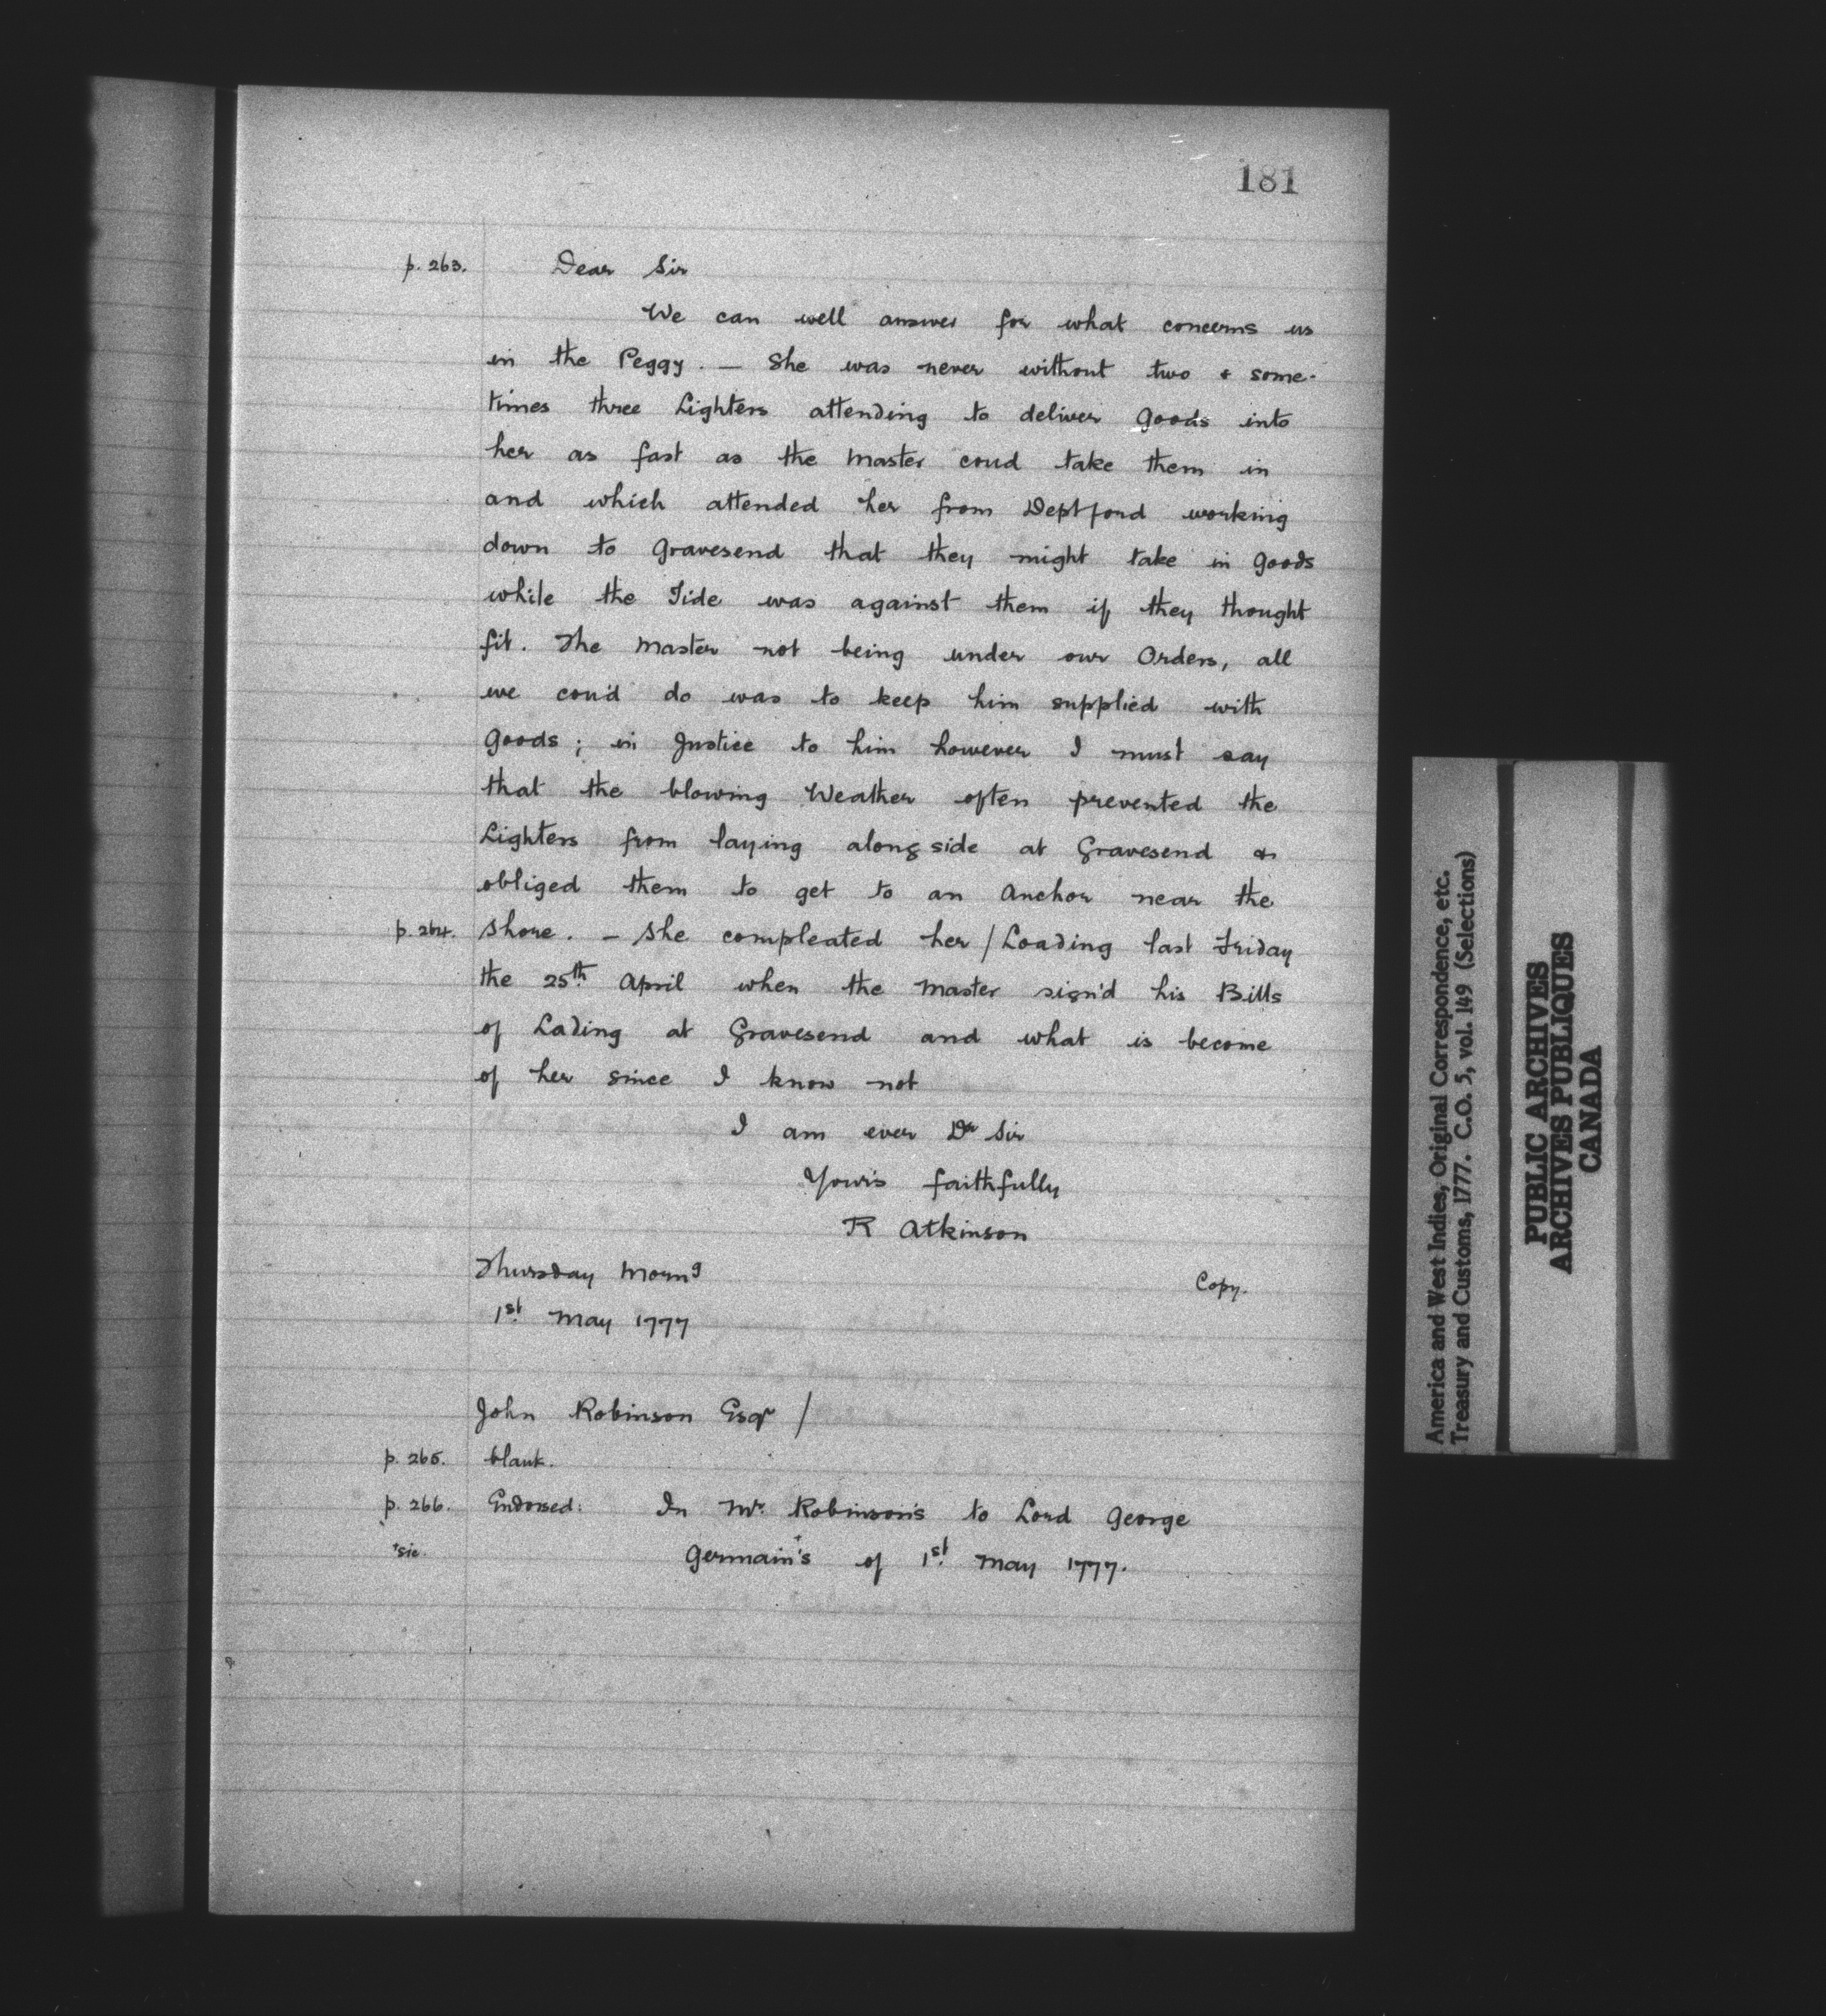 181
p. 263. Dear Sir
We can well answer for what concerns us
in the Peggy. — She was never without two & some-
times three Lighters attending to deliver Goods into
her as fast as the Master coud take them in
and which attended her from Deptford working
down to Gravesend that they might take in Goods
while the Tide was against them if they thought
fit. The Master not being under our Orders, all
we cou'd do was to keep him supplied with
Goods; in Justice to him however I must say
that the blowing Weather often prevented the
Lighters from laying along side at Gravesend &
obliged them to get to an Anchor near the
p. 264. Shore. — She compleated her / Loading last Friday
the 25th April when the Master sign'd his Bills
of Lading at Gravesend and what is become
of her since I know not
I am ever Dr Sir
Your's faithfully
R Atkinson
Thursday Morng
Copy.
1st May 1777
John Robinson Esqr /
p. 265. blank.
p. 266. Endorsed: In Mr. Robinson's to Lord George
+sic. Germain's+ of 1st May 1777.
America and West Indies, Original Correspondence, etc.
Treasury and Customs, 1777. C.O. 5, vol. 149 (Selections)
PUBLIC ARCHIVES
ARCHIVES PUBLIQUES
CANADA